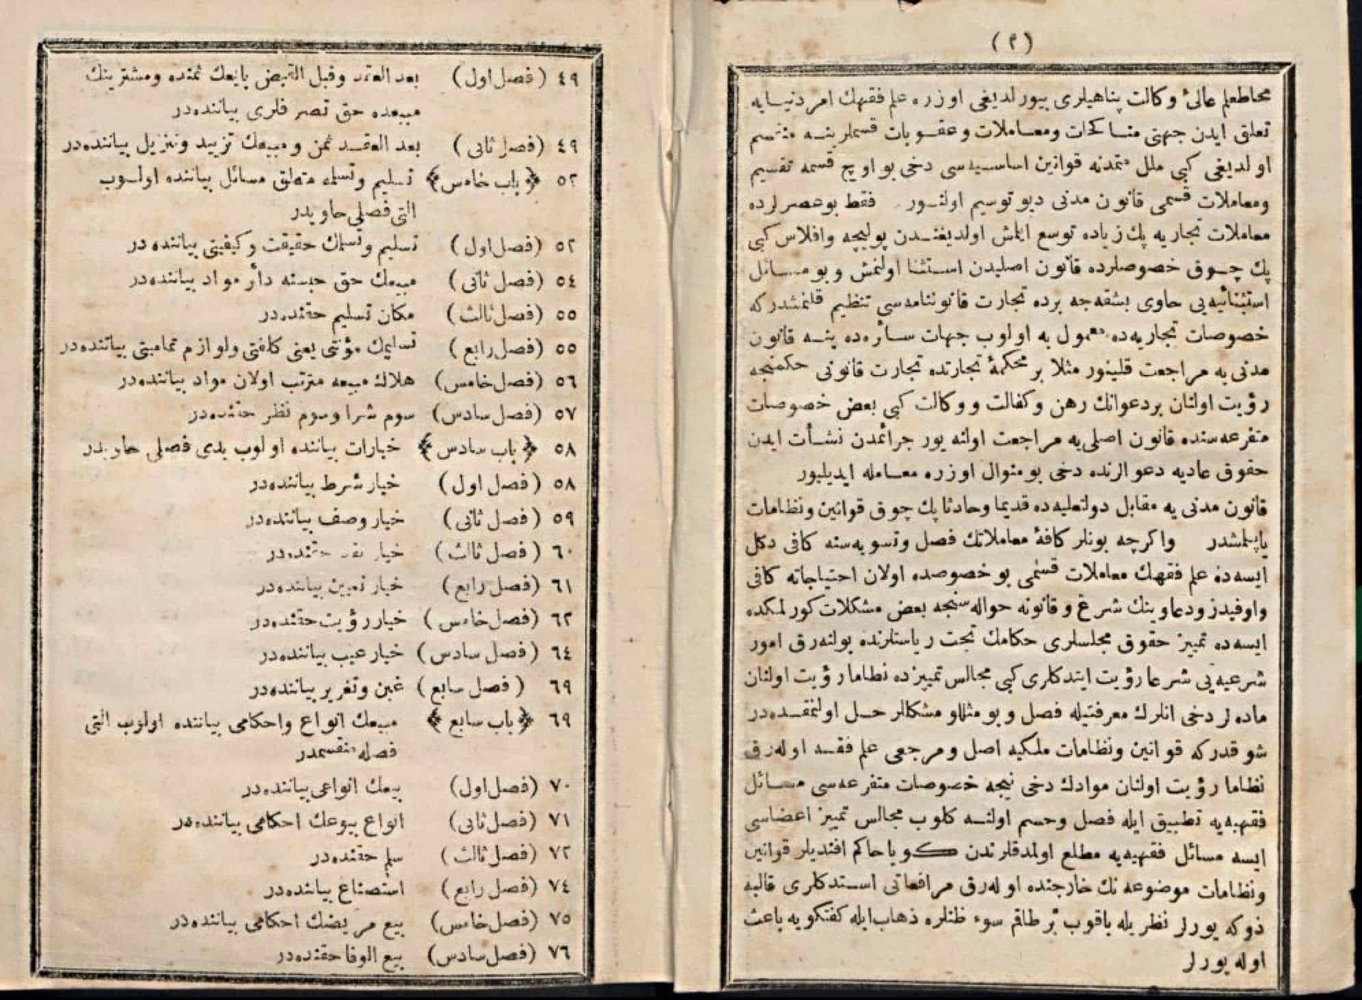 (٢)
محاط علم عالیٔ وكالت پناهیلری بیورلدیغی اوزره علم فقهك امر دنیایه
تعلق ایدن جهتی مناكحات ومعاملات وعقوبات قسملرینه منقسم
اولدیغی كبی ملل متمدنه قوانین اساسیه‌سی دخی بو اوچ قسمه تقسیم
ومعاملات قسمی قانون مدنی دیو توسیم اولنور. فقط بو عصرلرده
معاملات تجاریه پك زیاده توسع ایتمش اولدیغندن پولیچه وافلاس كبی
پك چوق خصوصلرده قانون اصلیدن استثنا اولنمش وبو مسائل
استثنائیه‌یی حاوی بشقه‌جه برده تجارت قانوننامه‌سی تنظیم قلنمشدركه
خصوصات تجاریه‌ده معمول به اولوب جهات سائره‌ده ینه قانون
مدنی‌یه مراجعت قلینور مثلا بر محكمهٔ تجارتده تجارت قانونی حكمنجه
رؤیت اولنان بر دعوانك رهن وكفالت ووكالت كبی بعض خصوصات
متفرعه‌سنده قانون اصلی‌یه مراجعت اولنه‌یور جرائمدن نشأت ایدن
حقوق عادیه دعوالرنده دخی بو منوال اوزره معامله ایدیلیور
قانون مدنی‌یه مقابل دولتعلیه‌ده قدیما وحادثا پك چوق قوانین ونظامات
یاپلمشدر واكرچه بونلر كافهٔ معاملاتك فصل وتسویه‌سنه كافی دكل
ایسه‌ده علم فقهك معاملات قسمی بو خصوصده اولان احتیاجاته كافی
ووافیدر ودعاوینك شرع وقانونه حواله‌سنجه بعض مشكلات كورلمكده
ایسه‌ده تمییز حقوق مجلسلری حكامك تحت ریاستلرنده بولنه‌رق امور
شرعیه‌یی شرعا رؤیت ایتدكلری كبی مجالس تمییزده نظاما رؤیت اولنان
ماده‌لر دخی انلرك معرفتیله فصل وبو مثللو مشكللر حل اولنمقده‌در
شو قدركه قوانین ونظامات ملكیه اصل ومرجعی علم فقه اوله‌رق
نظاما رؤیت اولنان موادك دخی نیجه خصوصات متفرعه‌سی مسائل
فقهیه‌یه تطبیق ایله فصل وحسم اولنه كلوب مجالس تمییز اعضاسی
ایسه مسائل فقهیه‌یه مطلع اولمدقلرندن كویا حاكم افندیلر قوانین
ونظامات موضوعه‌نك خارجنده اوله‌رق مرافعاتی استدكلری قالبه
دوكه‌یورلر نظریله باقوب بر طاقم سوء ظنلره ذهاب ایله كفتكویه باعث
اوله‌یورلر
٤٩ (فصل اول) بعد العقد وقبل القبض بایعك ثمنده ومشترینك
مبیعده حق تصرفلری بیاننده‌در
٤٩ (فصل ثانی) بعد العقد ثمن ومبیعك تزیید وتنزیل بیاننده‌در
٥٢ ﴿باب خامس﴾ تسلیم وتسلمه متعلق مسائل بیاننده اولوب
التی فصلی حاویدر
٥٢ (فصل اول) تسلیم وتسلمك حقیقت وكیفیتی بیاننده‌در
٥٤ (فصل ثانی) مبیعك حق حبسنه دائر مواد بیاننده‌در
٥٥ (فصل ثالث) مكان تسلیم حقنده‌در
٥٥ (فصل رابع) تسلیمك مؤنتی یعنی كلفتی ولوازم تمامیتی بیاننده‌در
٥٦ (فصل خامس) هلاك مبیعه مترتب اولان مواد بیاننده‌در
٥٧ (فصل سادس) سوم شرا وسوم نظر حقنده‌در
٥٨ ﴿باب سادس﴾ خیارات بیاننده اولوب یدی فصلی حاویدر
٥٨ (فصل اول) خیار شرط بیاننده‌در
٥٩ (فصل ثانی) خیار وصف بیاننده‌در
٦٠ (فصل ثالث) خیار نقد حقنده‌در
٦١ (فصل رابع) خیار تعیین بیاننده‌در
٦٢ (فصل خامس) خیار رؤیت حقنده‌در
٦٤ (فصل سادس) خیار عیب بیاننده‌در
٦٩ (فصل سابع) غبن وتغریر بیاننده‌در
٦٩ ﴿باب سابع﴾ مبیعك انواع واحكامی بیاننده اولوب التی
فصله منقسمدر
٧٠ (فصل اول) بیعك انواعی بیاننده‌در
٧١ (فصل ثانی) انواع بیوعك احكامی بیاننده‌در
٧٢ (فصل ثالث) سلم حقنده‌در
٧٤ (فصل رابع) استصناع بیاننده‌در
٧٥ (فصل خامس) بیع مریضك احكامی بیاننده‌در
٧٦ (فصل سادس) بیع الوفا حقنده‌در